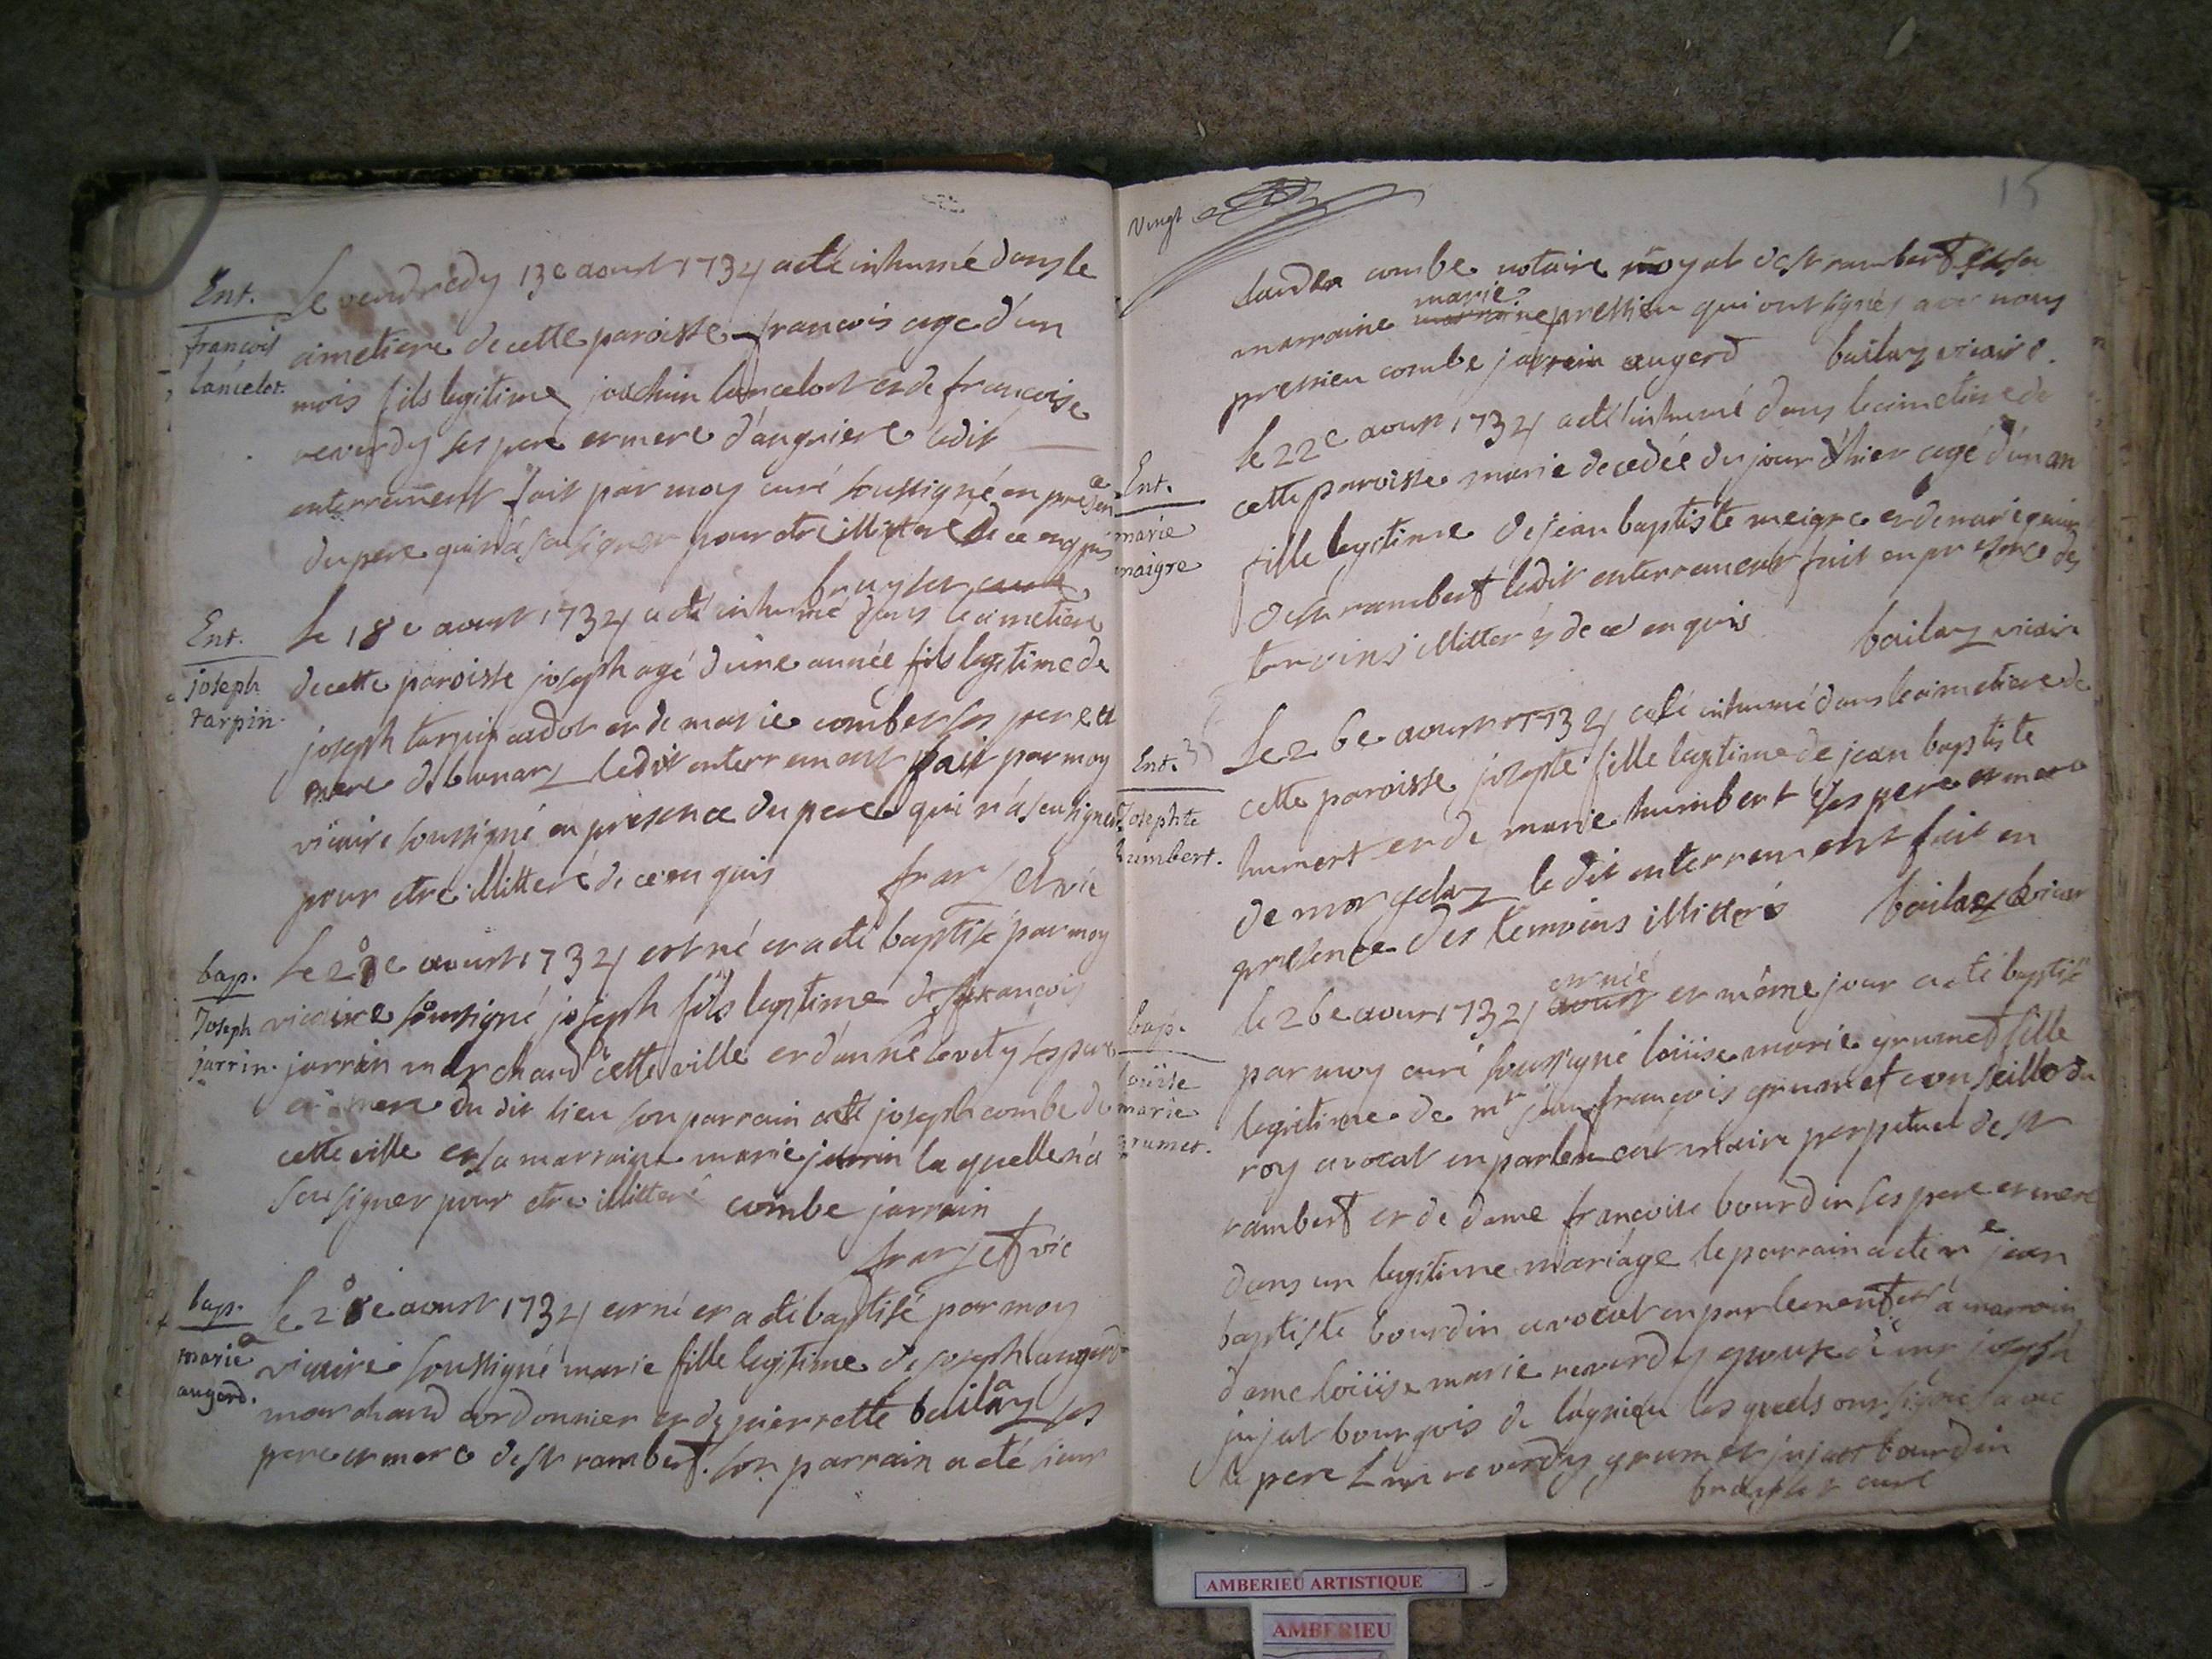 Ent.
françois
lancelot.
Le vendredy 13e aoust 1734 a eté inhumé dans le
cimetiere de cette paroisse françois agé d'un
mois fils legitime joachim lancelot et de françoise
reverdy ses pere et mere d'angriere ledit
enterrement fait par moy curé soussigné en presence
du pere qui n'a sçu signer pour etre illitteré de ce enquis
curé
Ent.
joseph
tarpin.
Le 18e aoust 1734 a eté inhumé dans le cimetiere
de cette paroisse joseph agé d'une année fils legitime de
joseph tarpin et de marie combet ses pere et
mere de ledit enterrement fait par moy
vicaire soussigné en presence du pere qui n'a sçeu signer
pour etre illitteré de ce enquis vic
bap.
Joseph
jarrin.
Le 20e aoust 1734 est né et a eté baptisé par moy
vicaire soussigné joseph fils legitime de françois
jarrin marchand de cette ville et d'anne ses pere
et mere du dit lieu son parrain a eté joseph combe de
cette ville et sa marraine marie jarrin la quelle n'a
sçu signer pour etre illitteré combe jarrin
vic
bap.
marie
augerd.
Le 20e aoust 1734 est né et a eté baptisé par moy
vicaire soussigné marie fille legitime de joseph augerd
marchand cordonnier et de pierrette bailaz ses
pere et mere de st rambert. son parrain a eté sieur
vingt
15
combe notaire royal de st rambert et sa
marraine marie pressieu qui ont signés avec nous
pressieu combe jarrin augerd bailaz vicaire.
Ent.
marie
maigre
Le 22e aoust 1734 a eté inhumé dans le cimetiere de
cette paroisse marie decedée du jour d'hier agé d'un an
fille legitime de jean baptiste meigre et de marie
de st rambert ledit enterrement fait en presence des
temoins illitterés de ce enquis bailaz vicaire
Ent.
Josephte
humbert.
Le 26e aoust 1734 a eté inhumé dans le cimetiere de
cette paroisse josepte fille legitime de jean baptiste
humert et de marie humbert ses pere et mere
de morgelaz le dit enterrement fait en
presence des temoins illitterés bailaz vicair
bap.
loüise
marie
grumet.
le 26e aoust 1734 est née et même jour a eté baptisé
par moy curé soussigné loüise marie grumet fille
legitime de mr jean françois grumet conseiller du
roy avocat en parlement maire perpetuel de st
rambert et de dame françoise bourdin ses pere et mere
dans un legitime mariage le parrain a eté mre jean
baptiste bourdin avocat en parlement et sa marraine
dame loüise marie reverdy epouse de mr joseph
jujat bourgois de lagnieu les quels ont signés avec
le pere L m reverdy grumet jujat bourdin
curé
AMBERIEU ARTISTIQUE
AMBERIEU